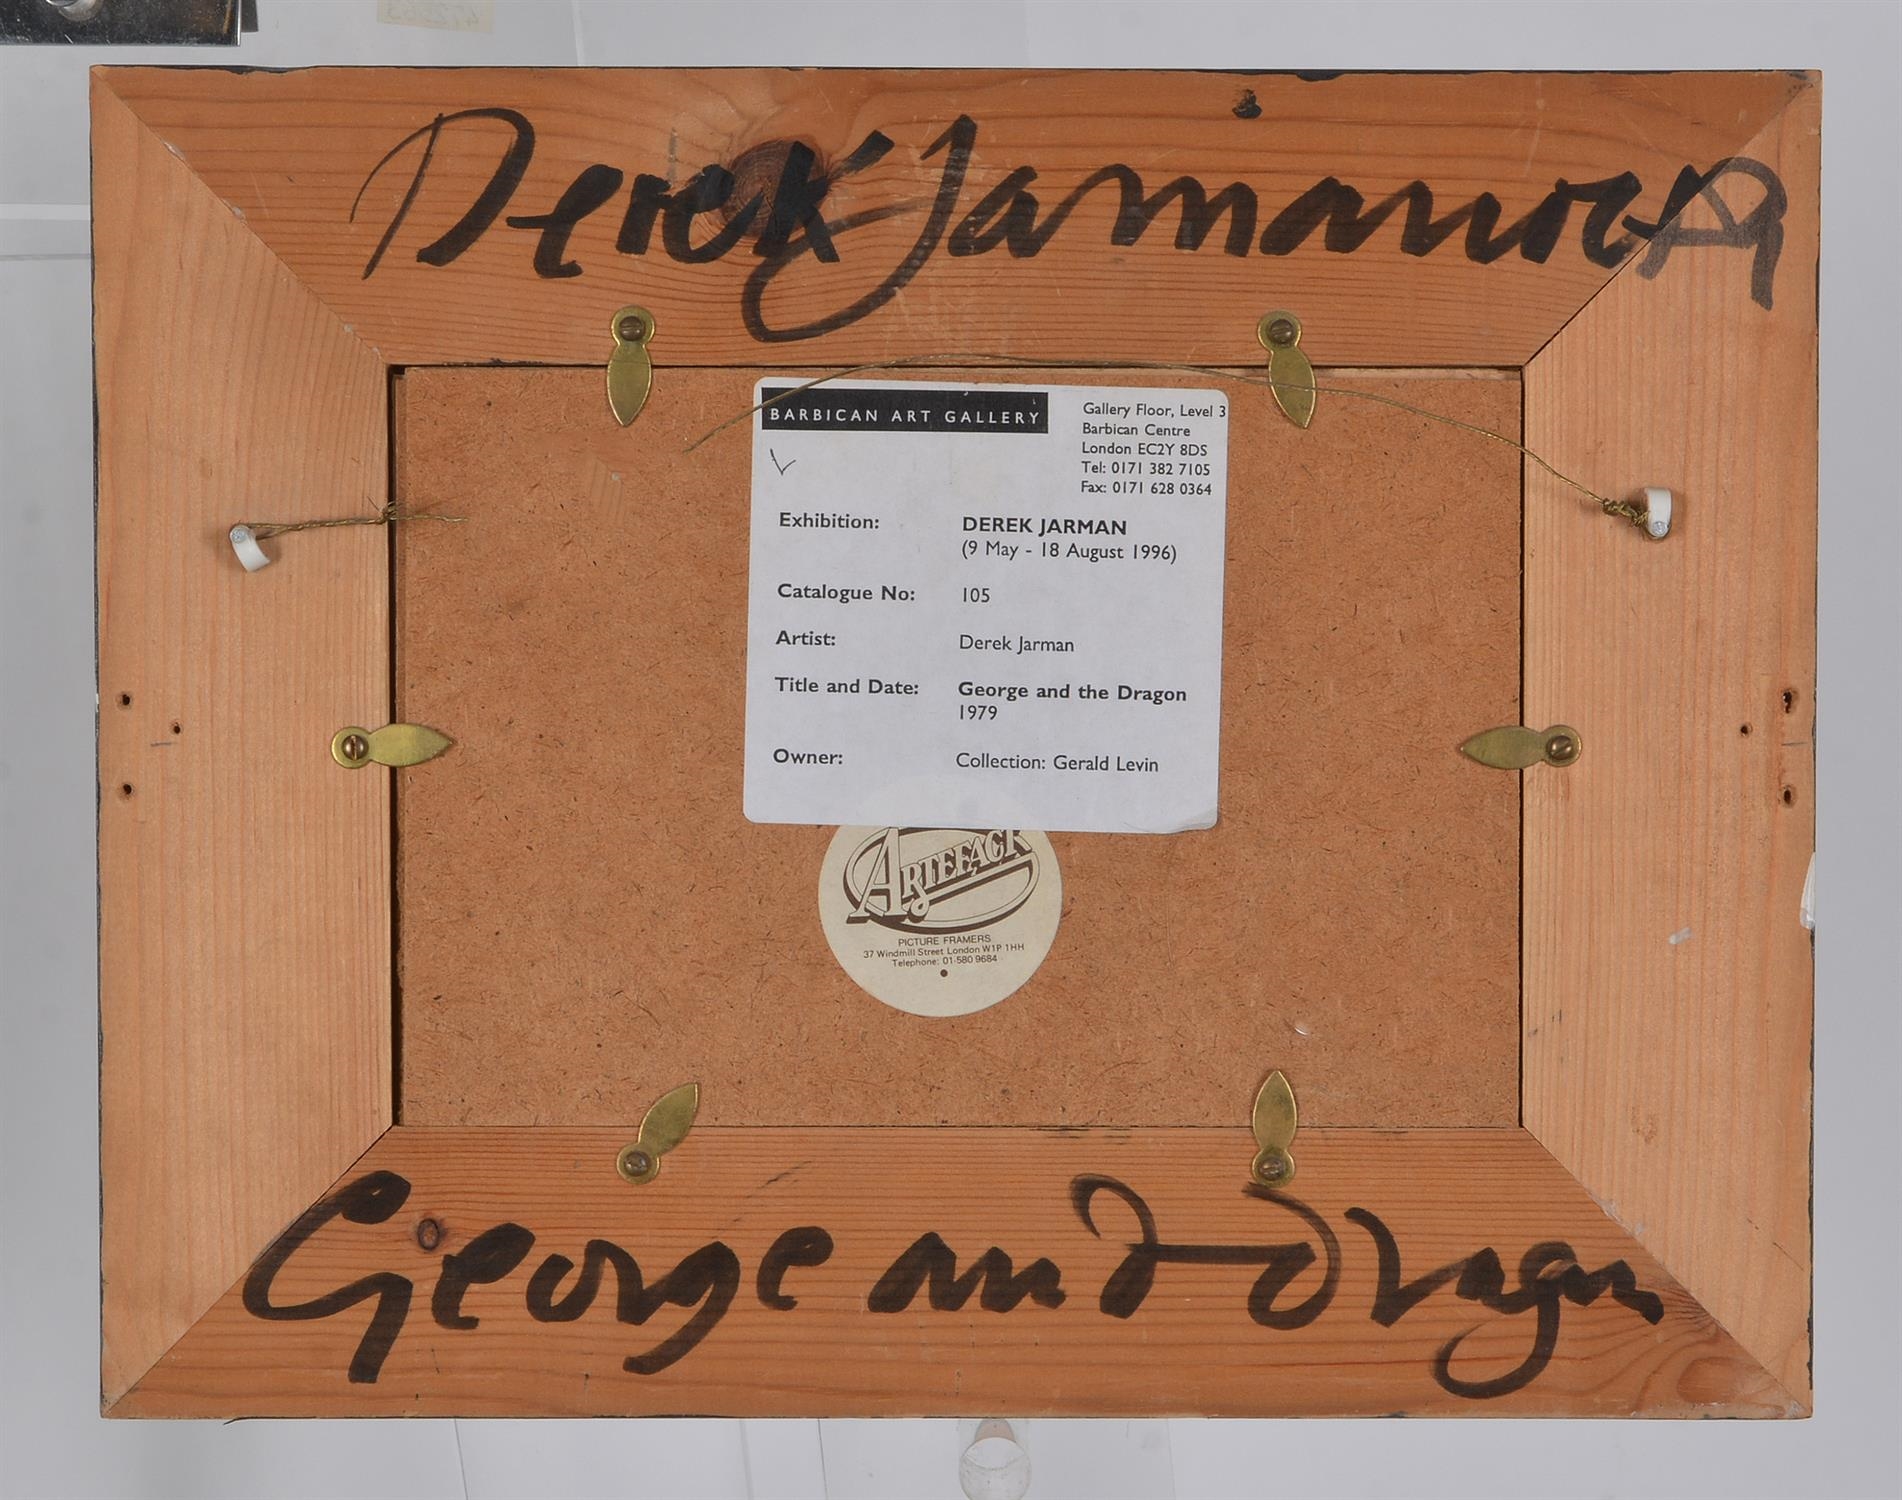 Derek Jarman
BARBICAN ART GALLERY
Gallery Floor, Level 3
Barbican Centre
London EC2Y 8DS
Tel: 0171 382 7105
Fax: 0171 628 0364
Exhibition: DEREK JARMAN
(9 May - 18 August 1996)
Catalogue No: 105
Artist: Derek Jarman
Title and Date: George and the Dragon
1979
Owner: Collection: Gerald Levin
ARTEFACT
PICTURE FRAMERS
37 Windmill Street London W1P 1HH
Telephone: 01-580 9684
George and Dragon